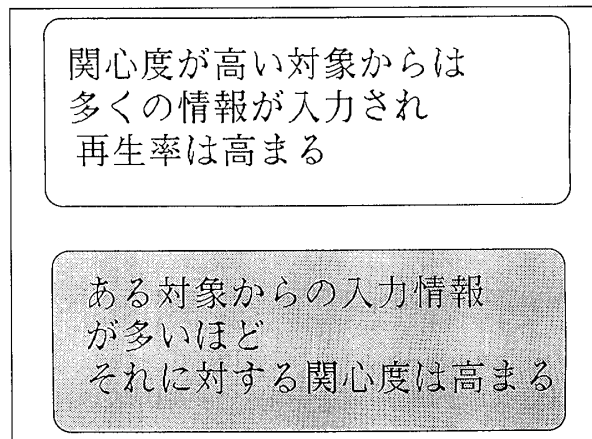 関心度が高い対象からは
多くの情報が入力され
再生率は高まる
ある対象からの入力情報
が多いほど
それに対する関心度は高まる